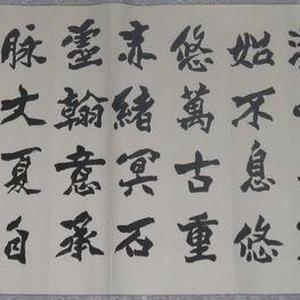 始不息悠
悠萬古重
赤緒冥石
靈翰意承
脉大夏自